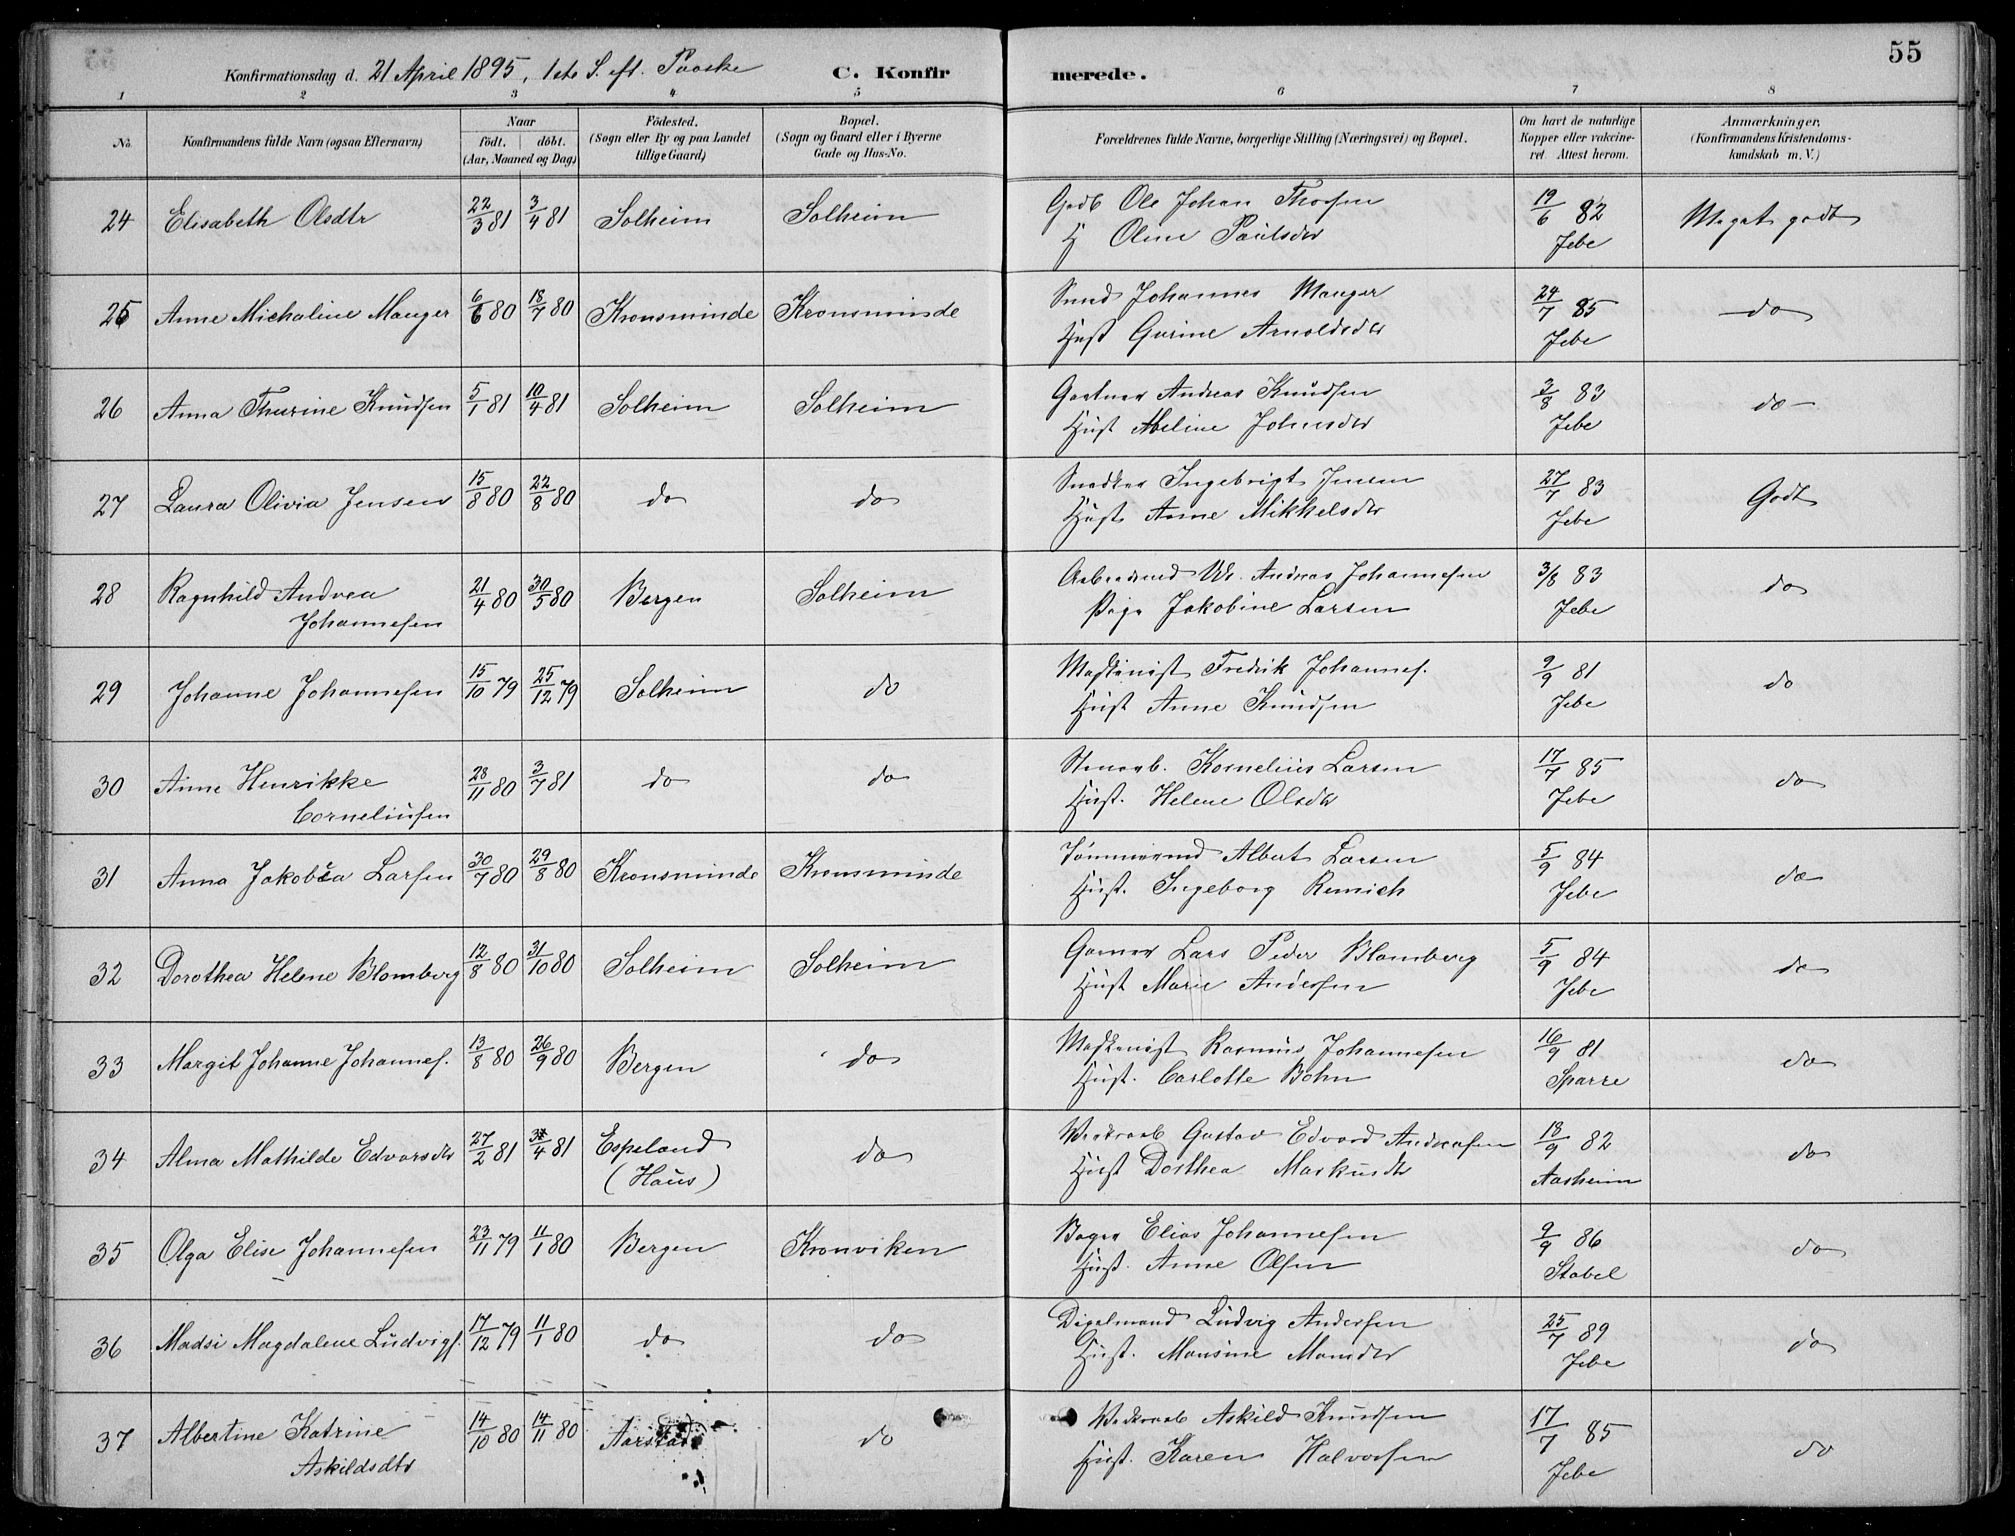 55
Konfirmationsdag d. 21 April 1895, 1ste S. eft. Paaske C. Konfirmerede.
1 2 3 4 5 6 7 8
No. Konfirmandens fulde Navn (ogsaa Efternavn) Naar födt. döbt. (Aar, Maaned og Dag) Födested. (Sogn eller By og paa Landet tillige Gaard) Bopæl. (Sogn og Gaard eller i Byerne Gade og Hus-No. Forældrenes fulde Navne, borgerlige Stilling (Næringsvei) og Bopæl. Om havt de naturlige Kopper eller vakcineret. Attest herom. Anmærkninger. (Konfirmandens Kristendomskundskab m. V.)
24 Elisabeth Olsdtr 22/3 81 3/4 81 Solheim Solheim Gadb Ole Johan Thorsen 19/6 82 Meget godt
H Oline Paulsdtr Jebe
25 Anne Michaline Manger 6/6 80 18/7 80 Kronsminde Kronsminde Smed Johannes Manger 24/7 85 do
Hust Gurine Arnoldsdtr Jebe
26 Anna Thurine Knudsen 5/1 81 10/4 81 Solheim Solheim Gartner Andreas Knudsen 3/8 83 do
Hust Abeline Johnsdtr Jebe
27 Laura Olivia Jensen 15/8 80 22/8 80 do do Snedker Ingebrigt Jensen 27/7 83 Godt
Hust Anne Mikkelsdtr Jebe
28 Ragnhild Andrea 21/4 80 30/5 80 Bergen Solheim Arbeidsmd Andreas Johannesen 3/8 83 do
Johannesen Pige Jakobine Larsen Jebe
29 Johanne Johannesen 15/10 79 25/12 79 Solheim do Maskinist Fredrik Johannes. 9/9 81 do
Hust Anne Knudsen Jebe
30 Anne Henrikke 28/11 80 3/7 81 do do Stenarb. Kornelius Larsen 17/7 85 do
Corneliussen Hust. Helene Olsdtr Jebe
31 Anna Jakobea Larsen 30/7 80 29/8 80 Kronsminde Kronsminde Tömmermd Albert Larsen 5/9 84 do
Hust. Ingeborg Remich Jebe
32 Dorothea Helene Blomberg 12/8 80 31/10 80 Solheim Solheim Lars Peder Blomberg 5/9 84 do
Hust Marie Andersen Jebe
33 Margit Johanne Johannes. 13/8 80 26/9 80 Bergen do Maskinist Rasmus Johannesen 16/9 81 do
Hust. Carlotte Bohn Sparre
34 Alma Mathilde Edvarsdtr 27/2 81 /4 81 Espeland do Gustav Edvard Andreasen 18/9 82 do
(Haus) Hust Dorthea Markusdtr Aasheim
35 Olga Elise Johannesen 23/11 79 11/1 80 Bergen Kronviken Bager Elias Johannesen 9/9 86 do
Hust. Anne Olsen Stabel
36 Madsi Magdalene Ludvigs. 17/12 79 11/1 80 do do Digelmand Ludvig Andersen 25/7 89 do
Hust. Monsine Monsdtr Jebe
37 Albertine Katrine 14/10 80 14/11 80 Aarstad do Askild Knudsen 17/7 85 do
Askildsdtr Hust. Karen Halvorsen Jebe